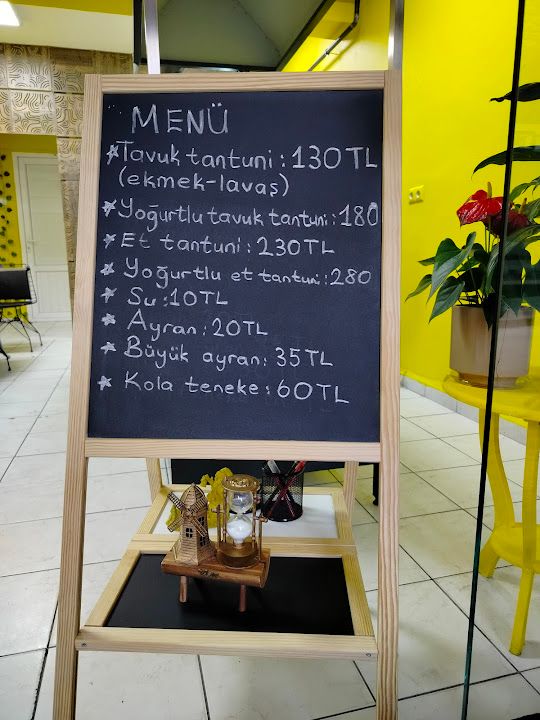 MENÜ
★ Tavuk tantuni : 130 TL
(ekmek-lavaş)
★ Yoğurtlu tavuk tantuni : 180
★ Et tantuni : 230 TL
★ Yoğurtlu et tantuni : 280
★ Su : 10 TL
★ Ayran : 20 TL
★ Büyük ayran : 35 TL
★ Kola teneke : 60 TL